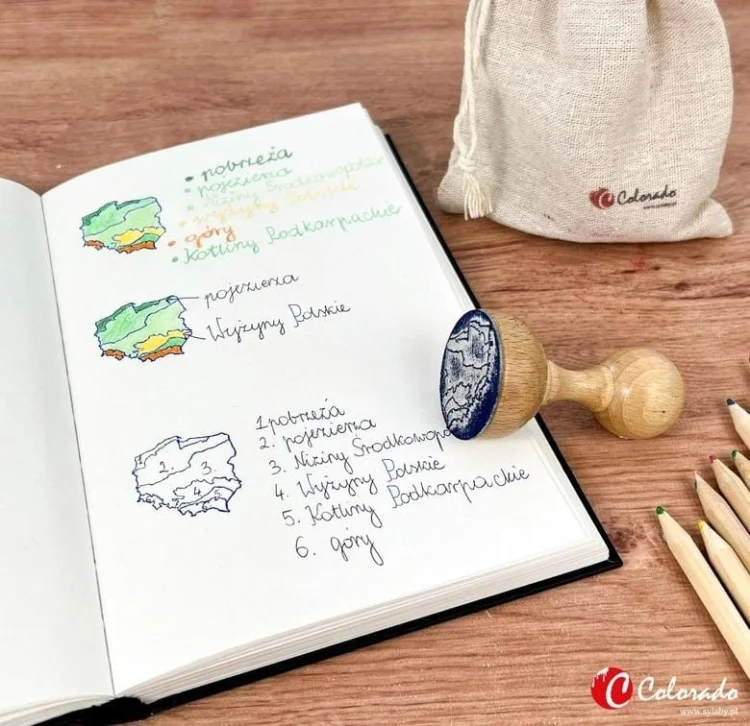 • pobrzeża
• pojezierza
• Niziny Środkowopolskie
• wyżyny Polskie
• góry
• Kotliny Podkarpackie
pojezierza
Wyżyny Polskie
1 pobrzeża
2. pojezierza
3. Niziny Środkowopo
4. Wyżyny Polskie
5. Kotliny Podkarpackie
6. góry
2. 3.
4 5
6
C Colorado
www.sylaby.pl
C Colorado
www.sylaby.pl